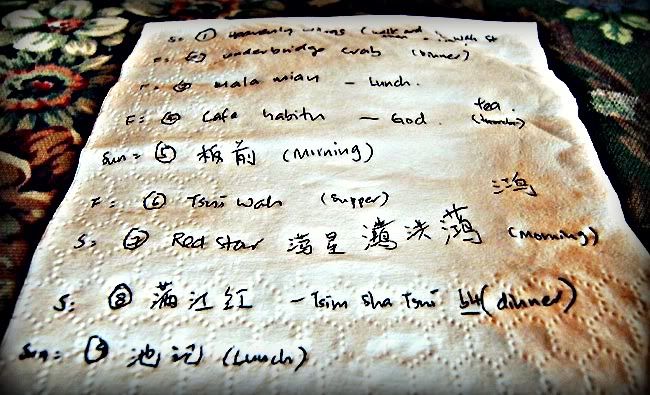 S: ① Heavenly wings (walk and Wah St
F: ② underbridge crab (Dinner)
F: ③ mala mian - Lunch.
F: ④ Cafe habitu - God. tea.
Sun: ⑤ 板前 (Morning)
F: ⑥ Tsui Wah (Supper)
鴻
S: ⑦ Red Star 鴻 (Morning)
S: ⑧ 满江红 - Tsim Sha Tsui b4 (dinner)
Sun: ⑨ 池记 (Lunch)